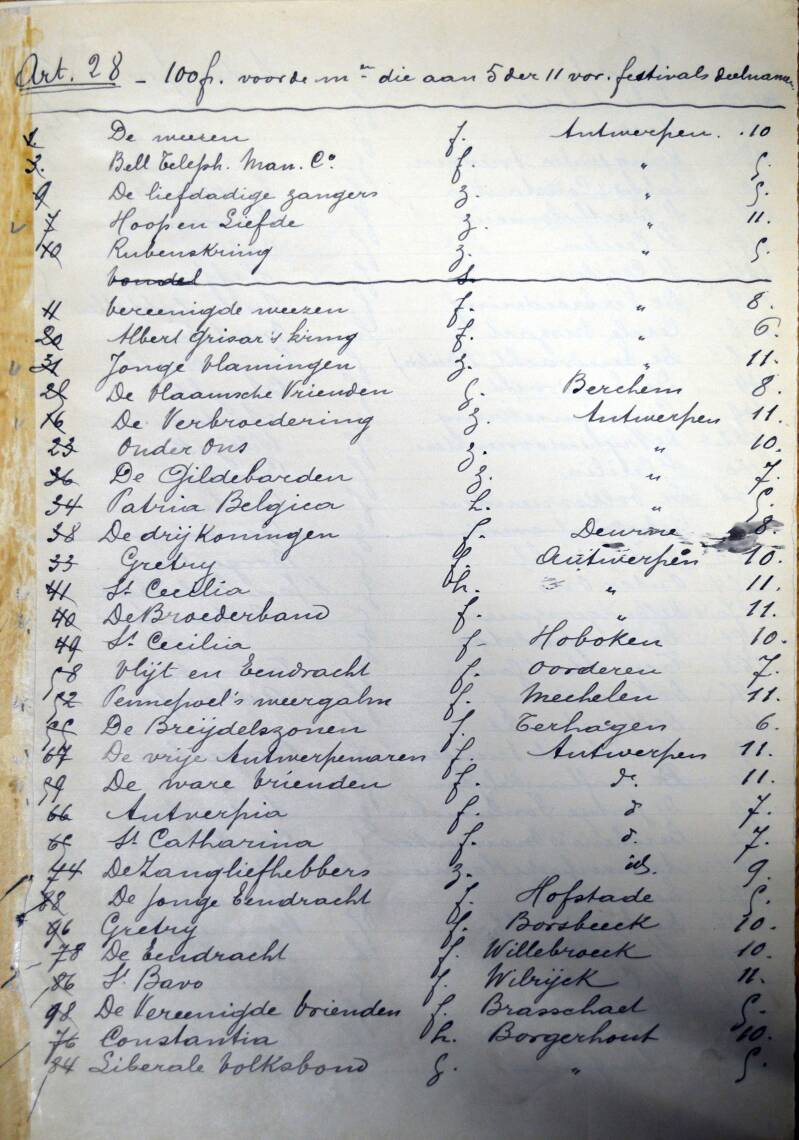 Art. 28 - 100f. voor de men die aan 5 der 11 vor. festivals deelnamen
1. De weezen f. Antwerpen. 10
3. Bell Teleph. Man. Co. f. " 5.
9 De liefdadige zangers z. " 5.
7 Hoop en Liefde z. " 11.
10 Rubenskring z. " 5.
Vondel
11 Vereenigde weezen f. " 8.
20 Albert Grisar's kring f. " 6.
31 Jonge Vlamingen z. " 11.
De Vlaamsche Vrienden g. Berchem 8.
16 De Verbroedering z. Antwerpen 11.
23 Onder Ons z. " 10.
36 De Gildebarden z. " 7.
34 Patria Belgica h. " 5.
38 De drij Koningen f. Deurne 8.
33 Gretry f. Antwerpen 10.
41 St Cecilia h. " 11.
40 De Broederband f. " 11.
49 St Cecilia f- Hoboken 10.
58 Vlijt en Eendracht f. Oorderen 7.
52 Pennepoel's weergalm f. Mechelen 11.
55 De Breijdelszonen f. Terhagen 6.
67 De vrije Antwerpenaren f. Antwerpen 11.
59 De ware Vrienden f. d. 11.
66 Antverpia f. d 7.
65 St Catharina f. d. 7.
44 De Zangliefhebbers z. id. 9.
88 De Jonge Eendracht f. Hofstade 5.
96 Gretry f. Borsbeeck 10.
78 De Eendracht f. Willebroeck 10.
86 St Bavo f. Wilrijck 11.
98 De Vereenigde Vrienden f. Brasschaet 5.
76 Constantia h. Borgerhout 10.
84 Liberale Volksbond g. " 5.